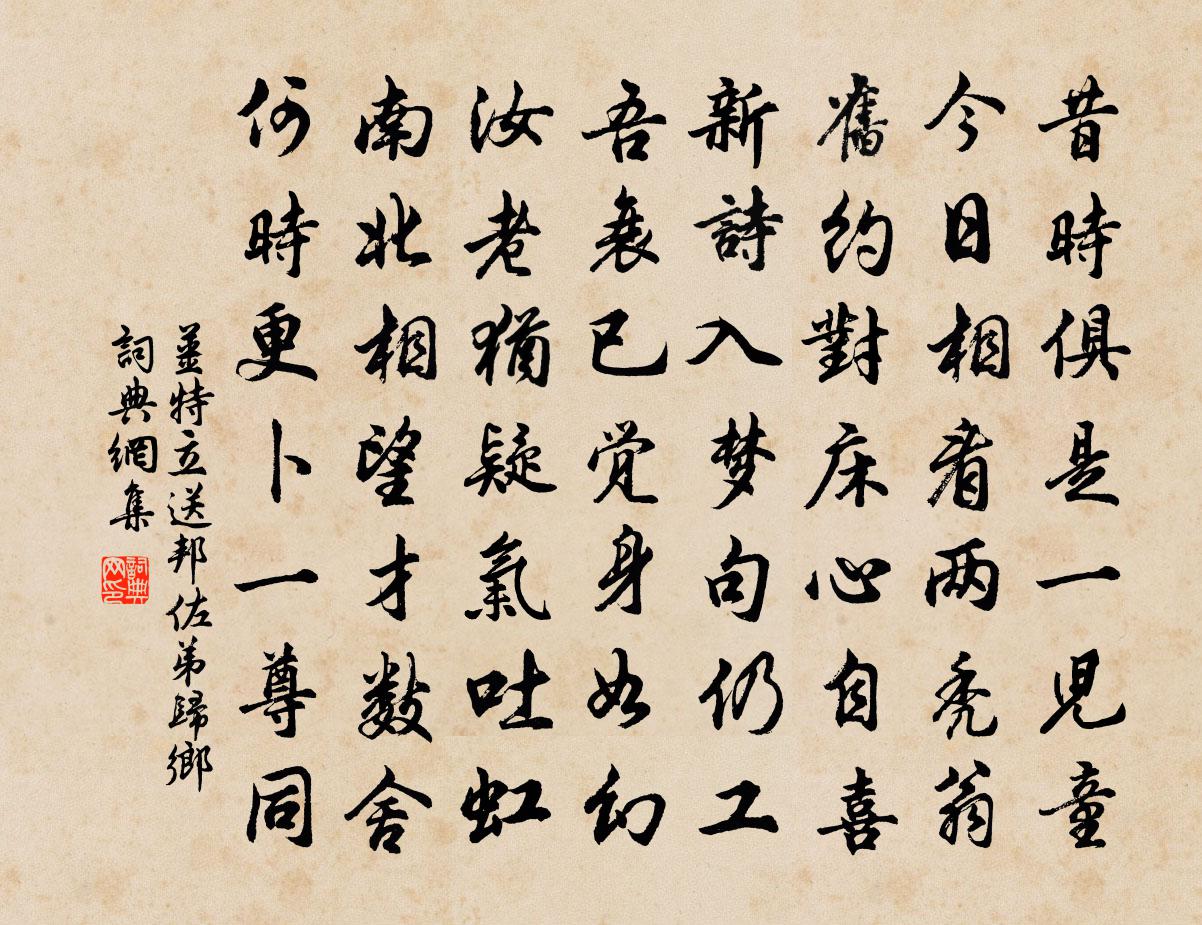 昔時俱是一児童
今日相看两秃翁
舊約對床心自喜
新詩入梦句仍工
吾衰已覚身如幻
汝老猶疑氣吐虹
南北相望才数舍
何時更卜一尊同
姜特立送邦佐弟歸鄉
詞典網集
詞典网印